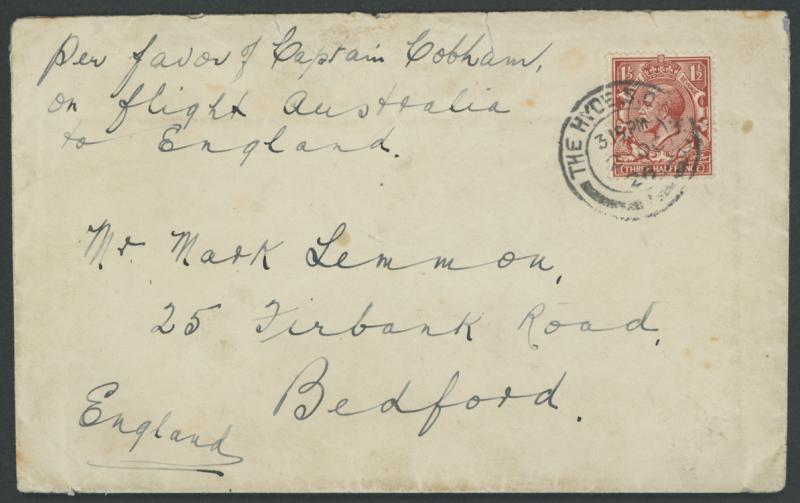 Per favor of Captain Cobham,
on flight Australia
to England.
1½ 1½
THREE HALFPENCE
THE HYDE
3 15 PM
Mr Mark Lemmon,
25 Firbank Road,
Bedford.
England